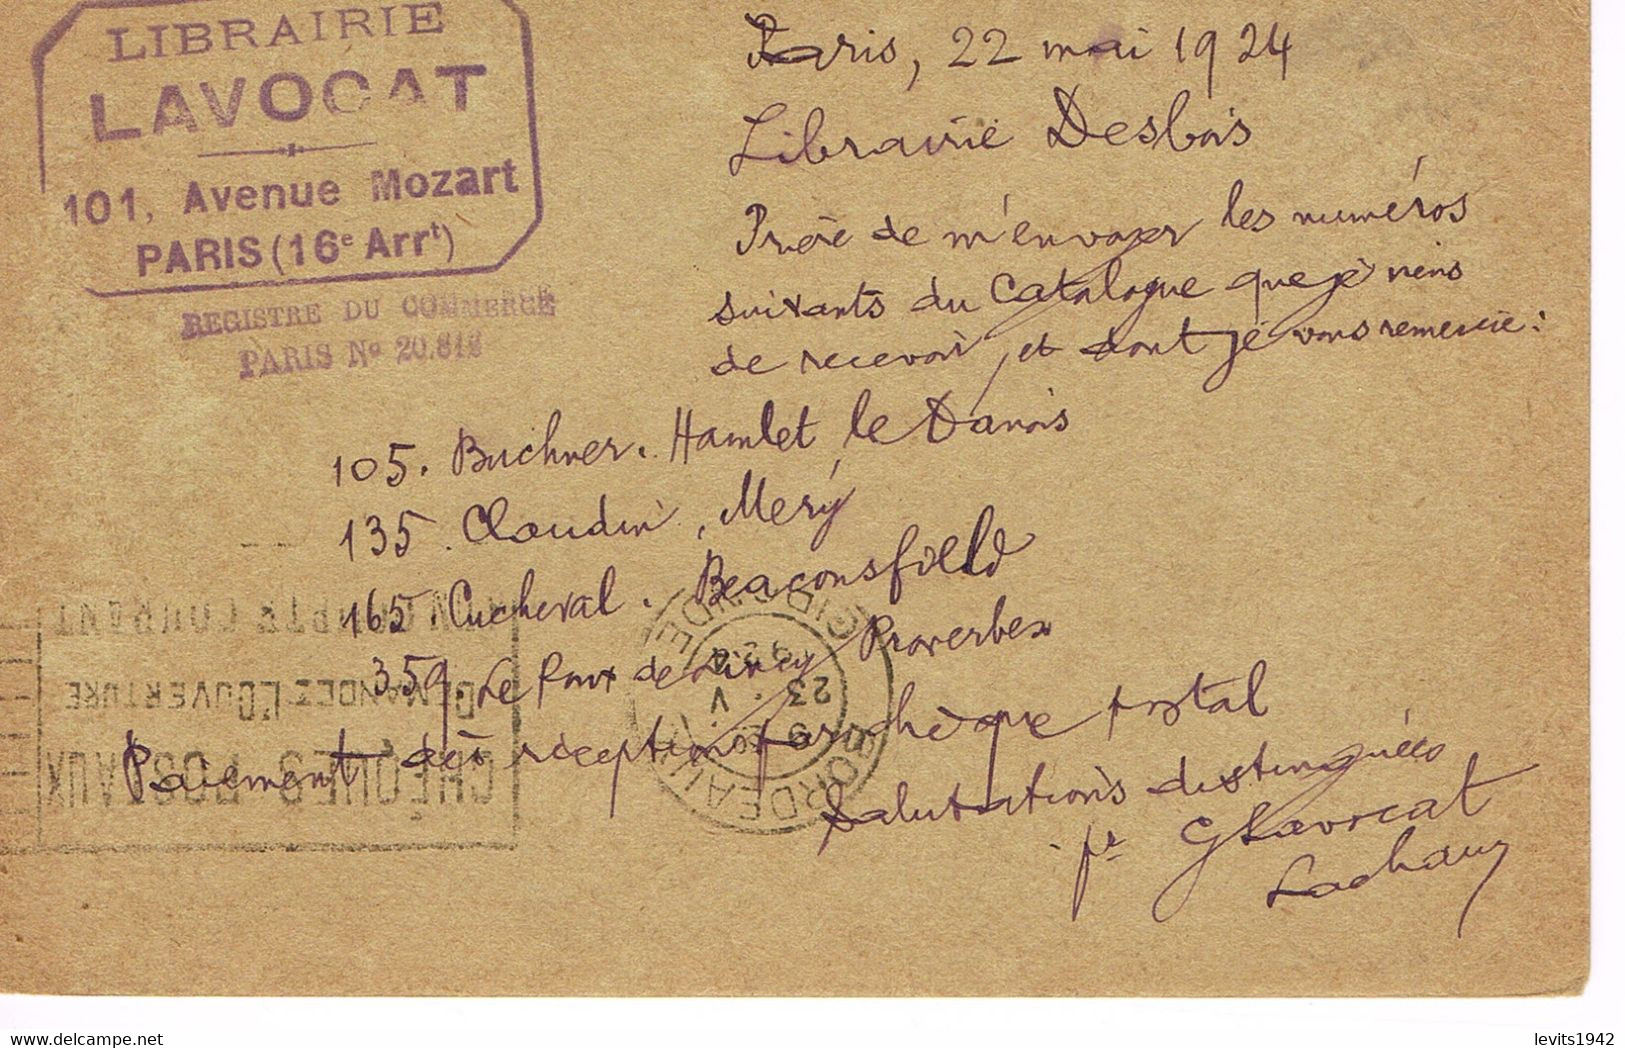 LIBRAIRIE
LAVOCAT
101, Avenue Mozart
PARIS (16e Arrt)
REGISTRE DU COMMERCE
PARIS No 20.612
Paris, 22 mai 1924
Librairie Desbois
Prière de m'envoyer les numéros
suivants du Catalogue que je viens
de recevoir, et dont je vous remercie :
105. Buchner. Hamlet le Danois
135. Claudin, Mery
165. Cucheval. Beaconsfield
359. Le Roux de Lincy Proverbes
Paiement dès réception par chèque postal
Salutations distinguées
pr G Lavocat
BORDEAUX
GIRONDE
23
V
CHÈQUES POSTAUX
DEMANDEZ L'OUVERTURE
COMPTE COURANT
levits1942